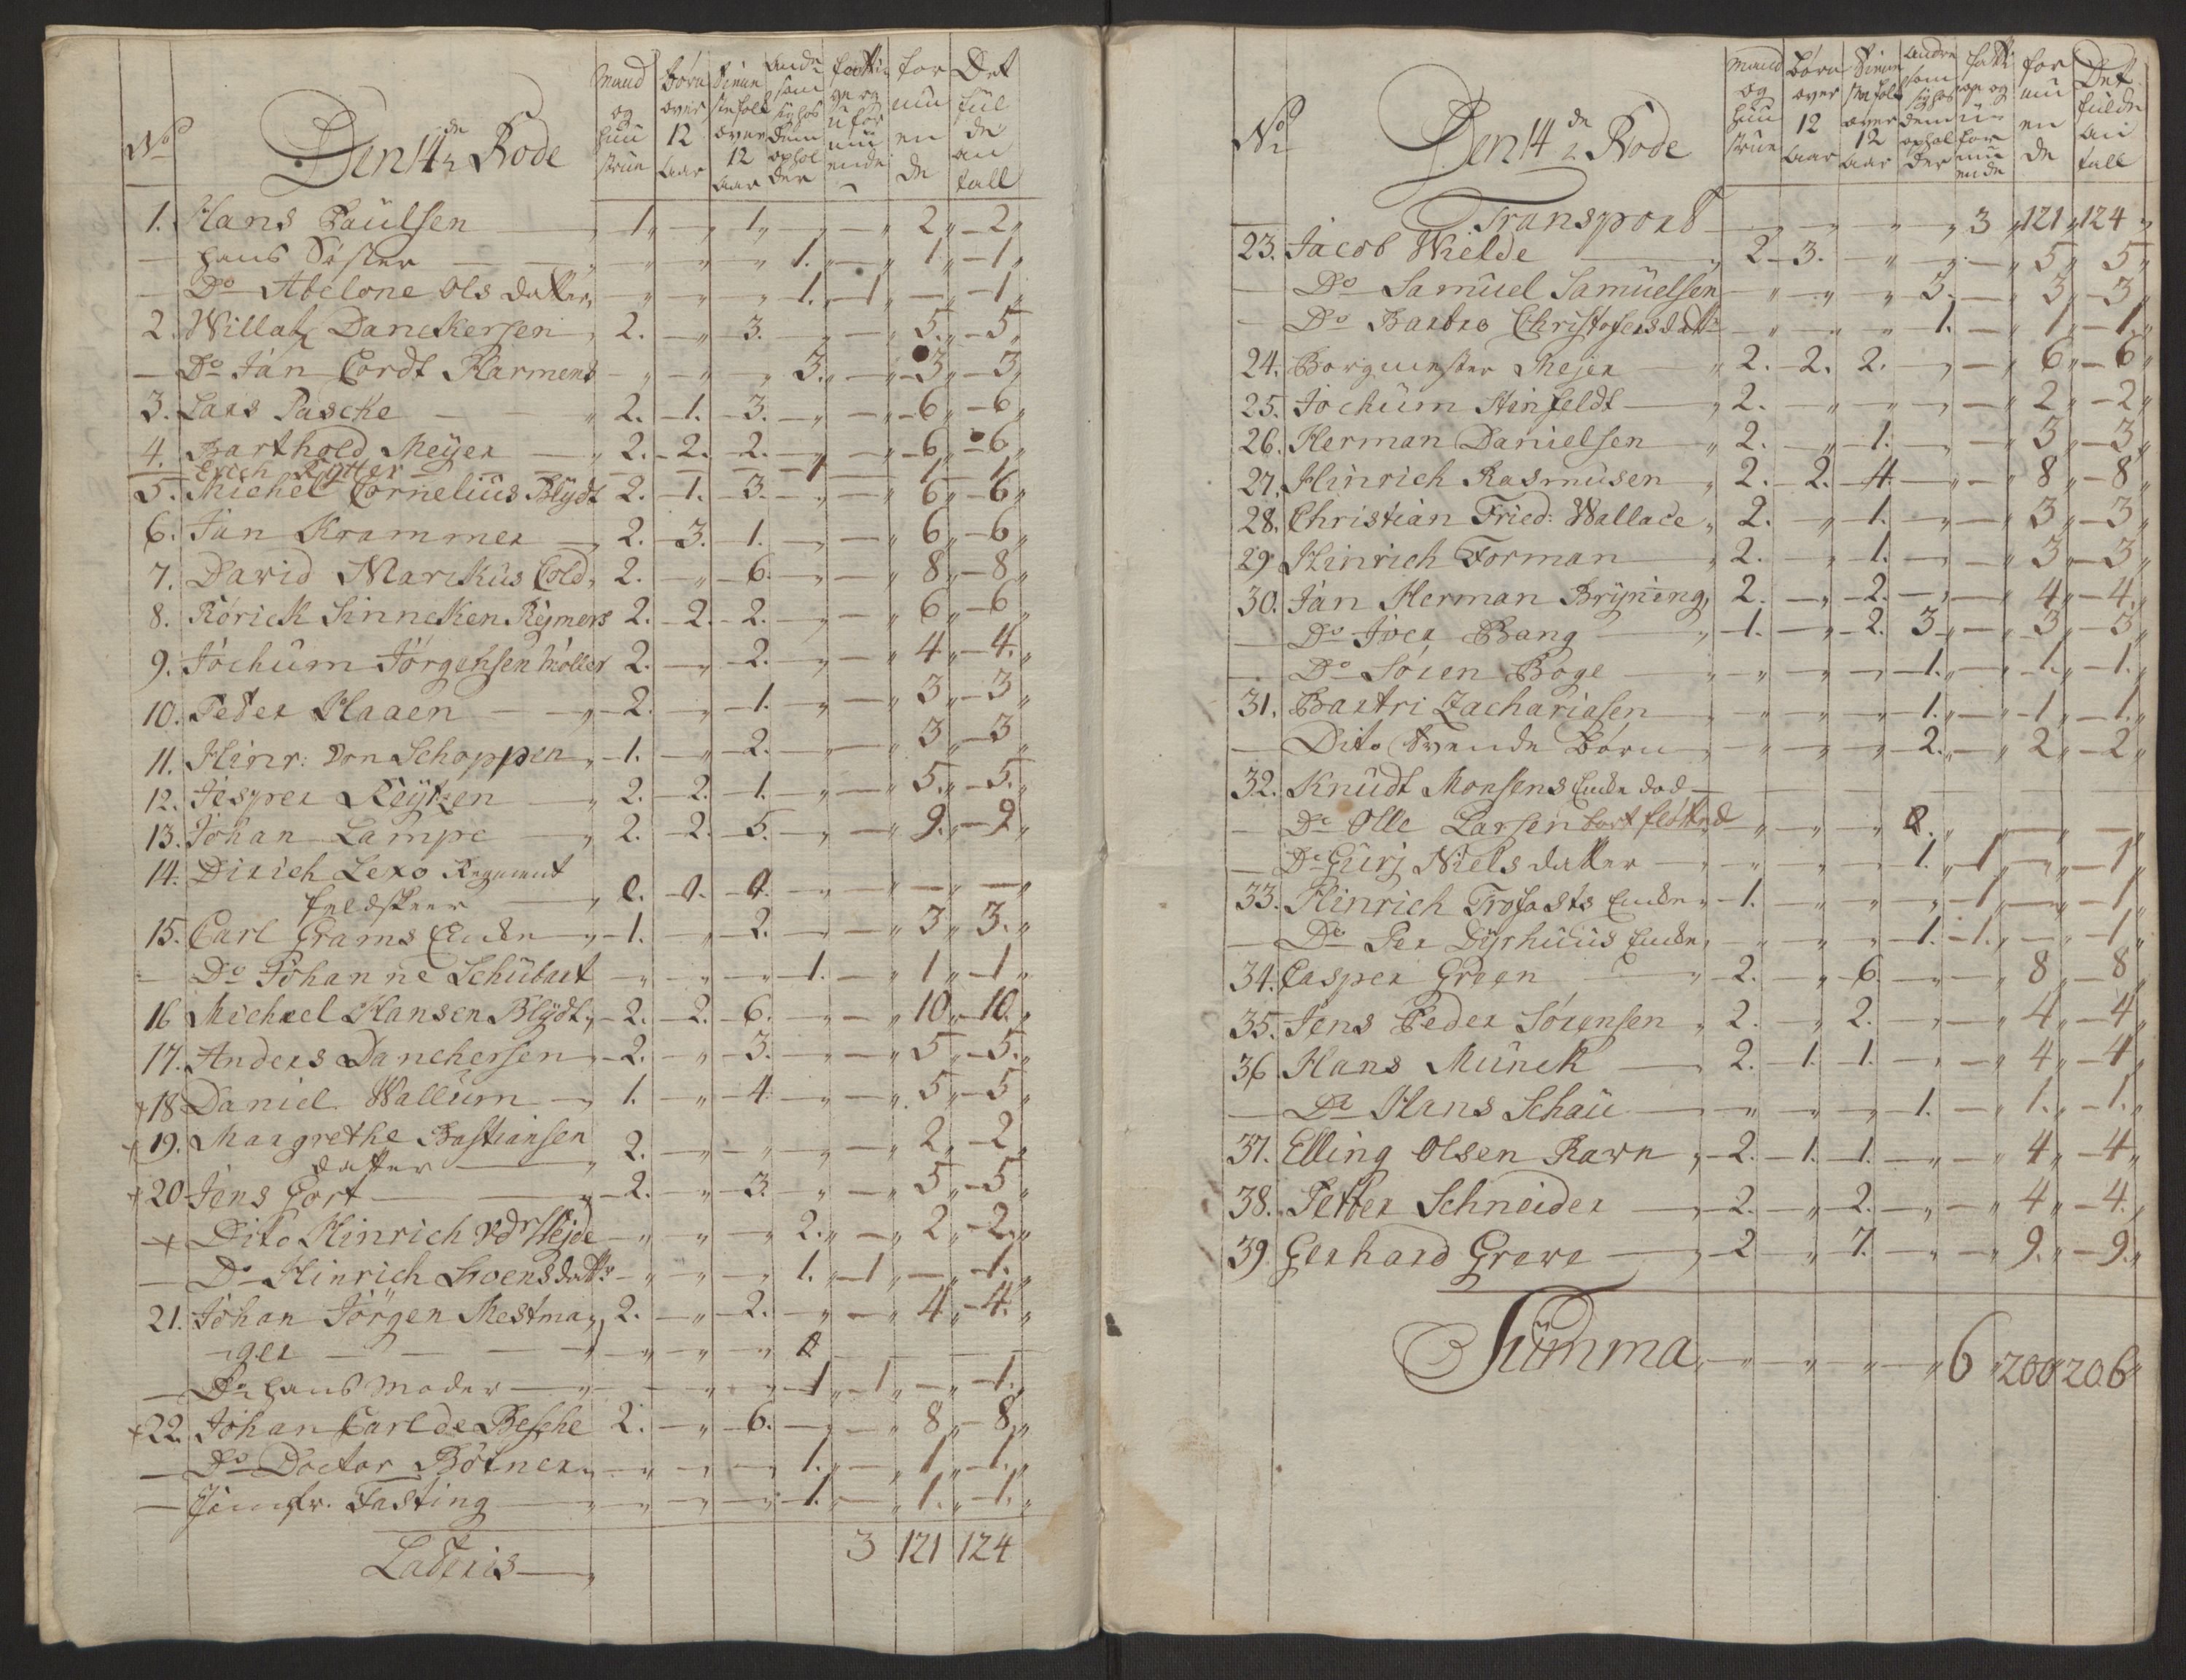 No
Den 14de Rode
Mand og Huustrue
Børn over 12 Aar
Tienestefolk over 12 Aar
Andre som sig hos dem opholder
fattige og uformuende
formuende
Det fulde antall
1. Hans Paülsen 1 „ 1 „ „ 2 2
— hans Søster „ „ „ 1. „ 1 1
— Do Abelone Ols datter „ „ „ 1. 1 — 1
2. Willatz Danckersen 2. „ 3. „ „ 5. 5
— Do Jan Cordt Harmens „ „ „ 3. „ 3 3
3. Lars Pascke 2. 1. 3. „ „ 6 6
4. Barthold Meÿer 2. 2. 2. „ „ 6 6
— Erich Rytter — — — 1 — 1 1
5. Michel Cornelius Blÿdt 2. 1. 3. „ „ 6 6
6. Jan Krammer 2. 3. 1. „ „ 6 6
7. David Marckus Cold 2. „ 6. „ „ 8 8
8. Rórick Sinncken Rÿmers 2. 2. 2. „ „ 6 6
9. Jóchum Jórgensen Móller 2. „ 2. „ „ 4 4.
10. Peter Haaen 2. „ 1. „ „ 3 3
11. Hinr: Von Schoppen 1. „ 2. „ „ 3 3
12. Jesper Reÿtzen 2. 2. 1. „ „ 5. 5.
13. Johan Lampe 2. 2. 5. „ „ 9. 9
14. Dirich Lexo Regiment
feldskier 0. 0. 0. „ „ — —
15. Carl Grams Encke 1. „ 2. „ „ 3 3.
— Do Johanne Schübart „ „ „ 1. „ 1 1
16 Michael Hansen Blÿdt 2. 2. 6. „ „ 10 10.
17. Anders Danchersen 2. „ 3. „ „ 5 5.
+18 Daniel Wallüm 1. „ 4. „ „ 5 5
+19. Margrethe Bastiansen
datter 2. „ „ „ „ 2 2
+20 Jens Gort 2. „ 3 „ „ 5 5
+ Dito Hinrich vdr Hejde „ „ „ 2. „ 2 2
— Do Hinrich Svensdattr „ „ „ 1. 1 — 1.
21. Johan Jörgen Mestma 2. „ 2. „ „ 4 4.
ger
— Do hans Moder „ „ „ 1 1 „ 1.
+22. Johan Carl de Besche 2. „ 6. „ „ 8 8
— Do Doctor Bótner „ „ „ 1. „ 1 1.
— Jomfr. Fasting „ „ „ 1. „ 1. 1.
Lateris 3 121 124
No
Den 14de Rode
Mand og Huustrue
Børn over 12 Aar
Tienestefolk over 12 Aar
Andre som sig hos dem opholder
fattige og uformuende
formuende
Det fulde antall
Transport „ „ „ „ 3 121 124
23. Jacob Wielde 2 3. „ „ „ 5 5
— Do Samuel Samüelsen „ „ „ 3. „ 3 3
— Do Bartro Christofersdatr „ „ „ 1. „ 1 1.
24. Borgmester Mejer 2. 2. 2. „ „ 6 6
25. Jochüm Hinfeldt 2. „ „ „ „ 2 2
26. Herman Danielsen 2. „ 1. „ „ 3 3
27. Hinrich Rasmusen 2. 2. 4. „ „ 8 8
28. Christian Fried: Wallace 2. „ 1. „ „ 3 3
29 Hinrich Forman 2. „ 1. „ „ 3 3
30. Jan Herman Brÿning 2. „ 2. „ „ 4 4.
— Do Iver Bang 1. „ 2. 3 „ 3 3
— Do Sören Boge „ „ „ 1. „ 1. 1.
31. Bartri Zachariasen „ „ „ 1. „ 1 1.
— Dito Svende Børn „ „ „ 2. „ 2 2
32. Knüdt Monsens Encke død
— Do Olle Larsen bort fløtted „ „ „ 0. „ — —
— Do Gurj Niels datter „ „ „ 1. 1 „ 1
33. Hinrich Trofasts Encke 1. „ „ „ 1 — 1
— Do Per Dÿrhüüs Encke „ „ „ 1. 1. — 1
34. Casper Green 2. „ 6. „ „ 8 8
35. Jens Peder Sórensen 2. „ 2. „ „ 4 4
36 Hans Münck 2. 1. 1. „ „ 4 4
— Do Hans Schaü „ „ „ 1. „ 1. 1.
37. Elling Olsen Ravn 2. 1. 1. „ „ 4 4
38. Petter Schneider 2. „ 2. „ „ 4 4.
39 Gerhard Greve 2 „ 7. „ „ 9. 9.
Sümma „ „ „ „ 6 200 206